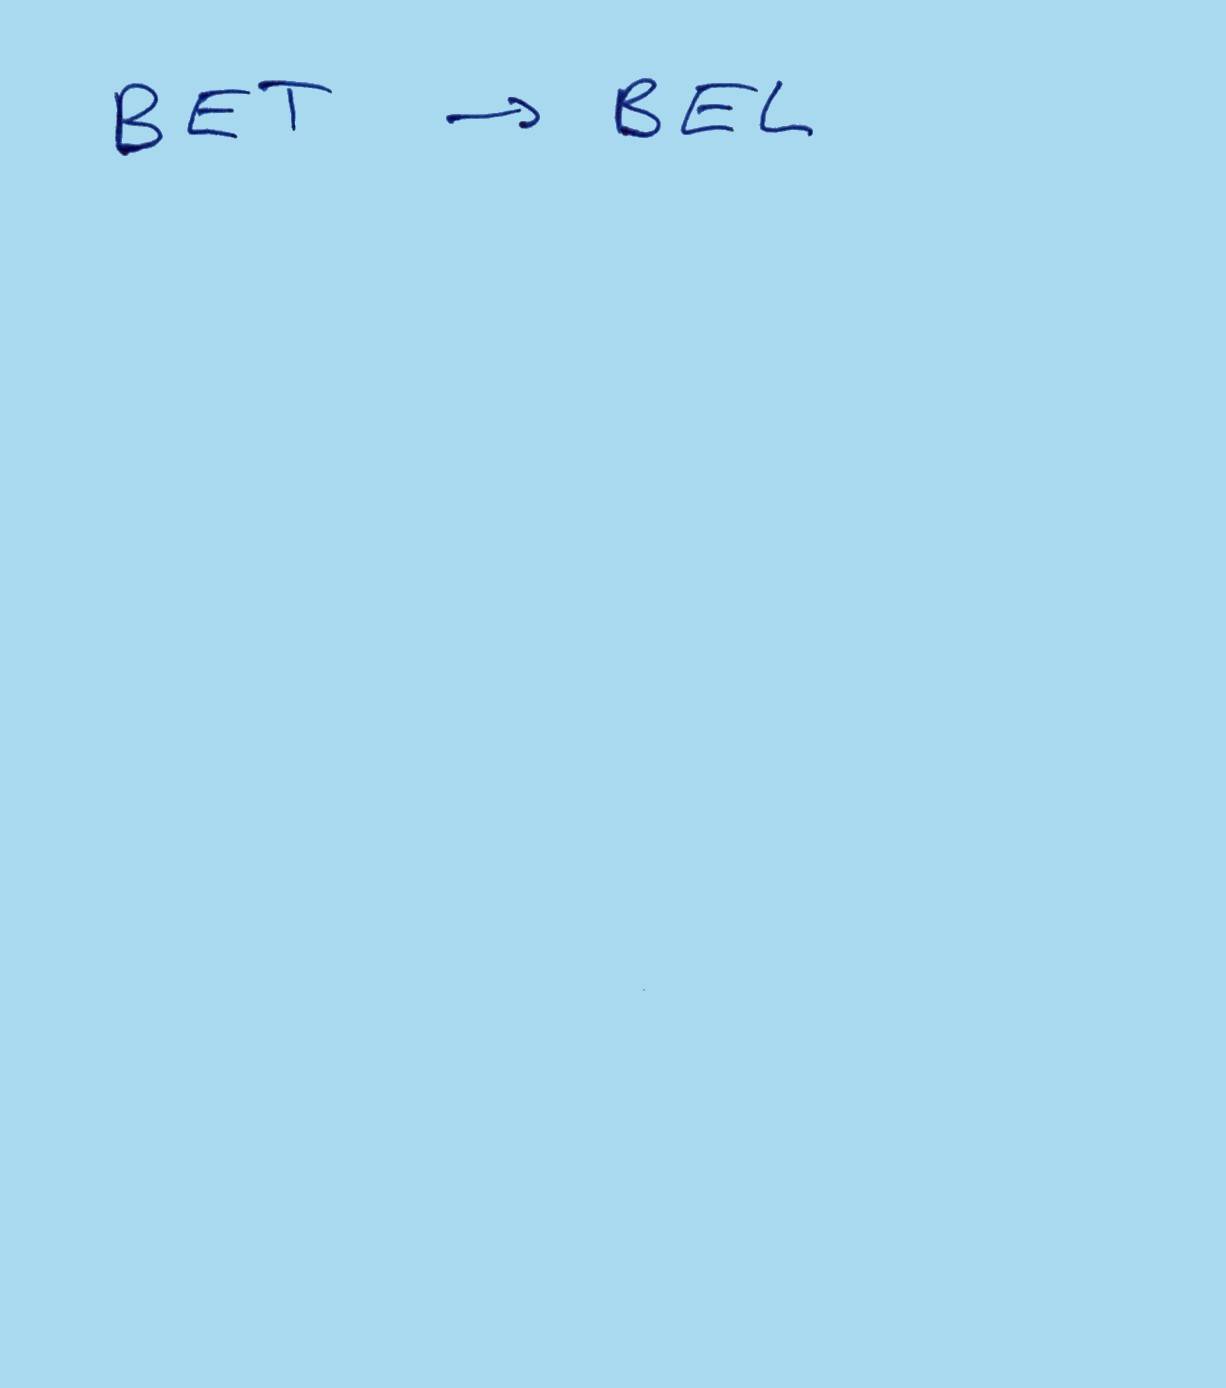 BET → BEL